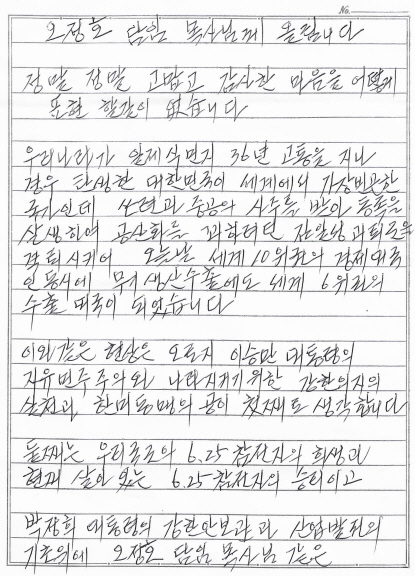 No.
오정호 담임 목사님께 올립니다
정말 정말 고맙고 감사한 마음을 어떻게
표현 할길이 없습니다
우리나라가 일제 식민지 36년 고통을 지나
겨우 탄생한 대한민국이 세계에서 가장빈곤한
국가인데 쏘련과 중공의 사주를 받아 동족을
살생하여 공산화를 꾀하려던 김일성 괴뢰군을
격퇴시키어 오늘날 세계 10위권의 경제대국
인동시에 무기 생산수출에도 세계 6위권의
수출 대국이 되었습니다
이와같은 현상은 오로지 이승만 대통령의
자유민주주의와 나라지키기위한 강한의지의
실천과 한미동맹의 공이 첫째로 생각합니다
둘째는 우리국군의 6.25참전자의 희생과
현재 살아 있는 6.25참전자의 승리이고
박정희 대통령의 강한안보관과 산업발전의
기초위에 오정호 담임 목사님 같은